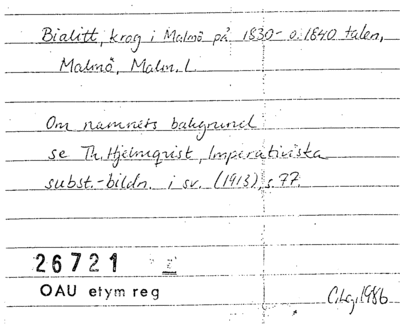 Bialitt, krog i Malmö på 1830- o. 1840 talen,
Malmö, Malm. L
Om namnets bakgrund
se Th. Hjelmqvist, Imperativiska
subst.-bildn. i sv. (1913), s. 77.
26721
OAU etym reg
1986